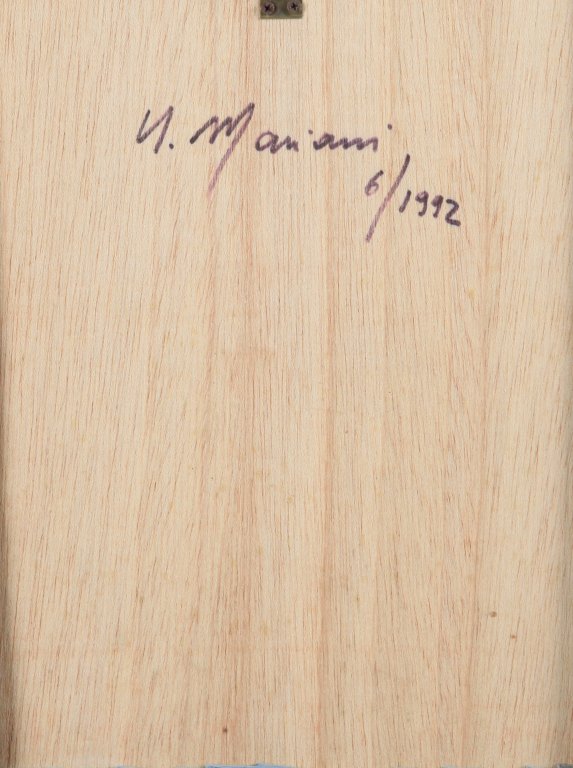 U. Mariani
6/1992